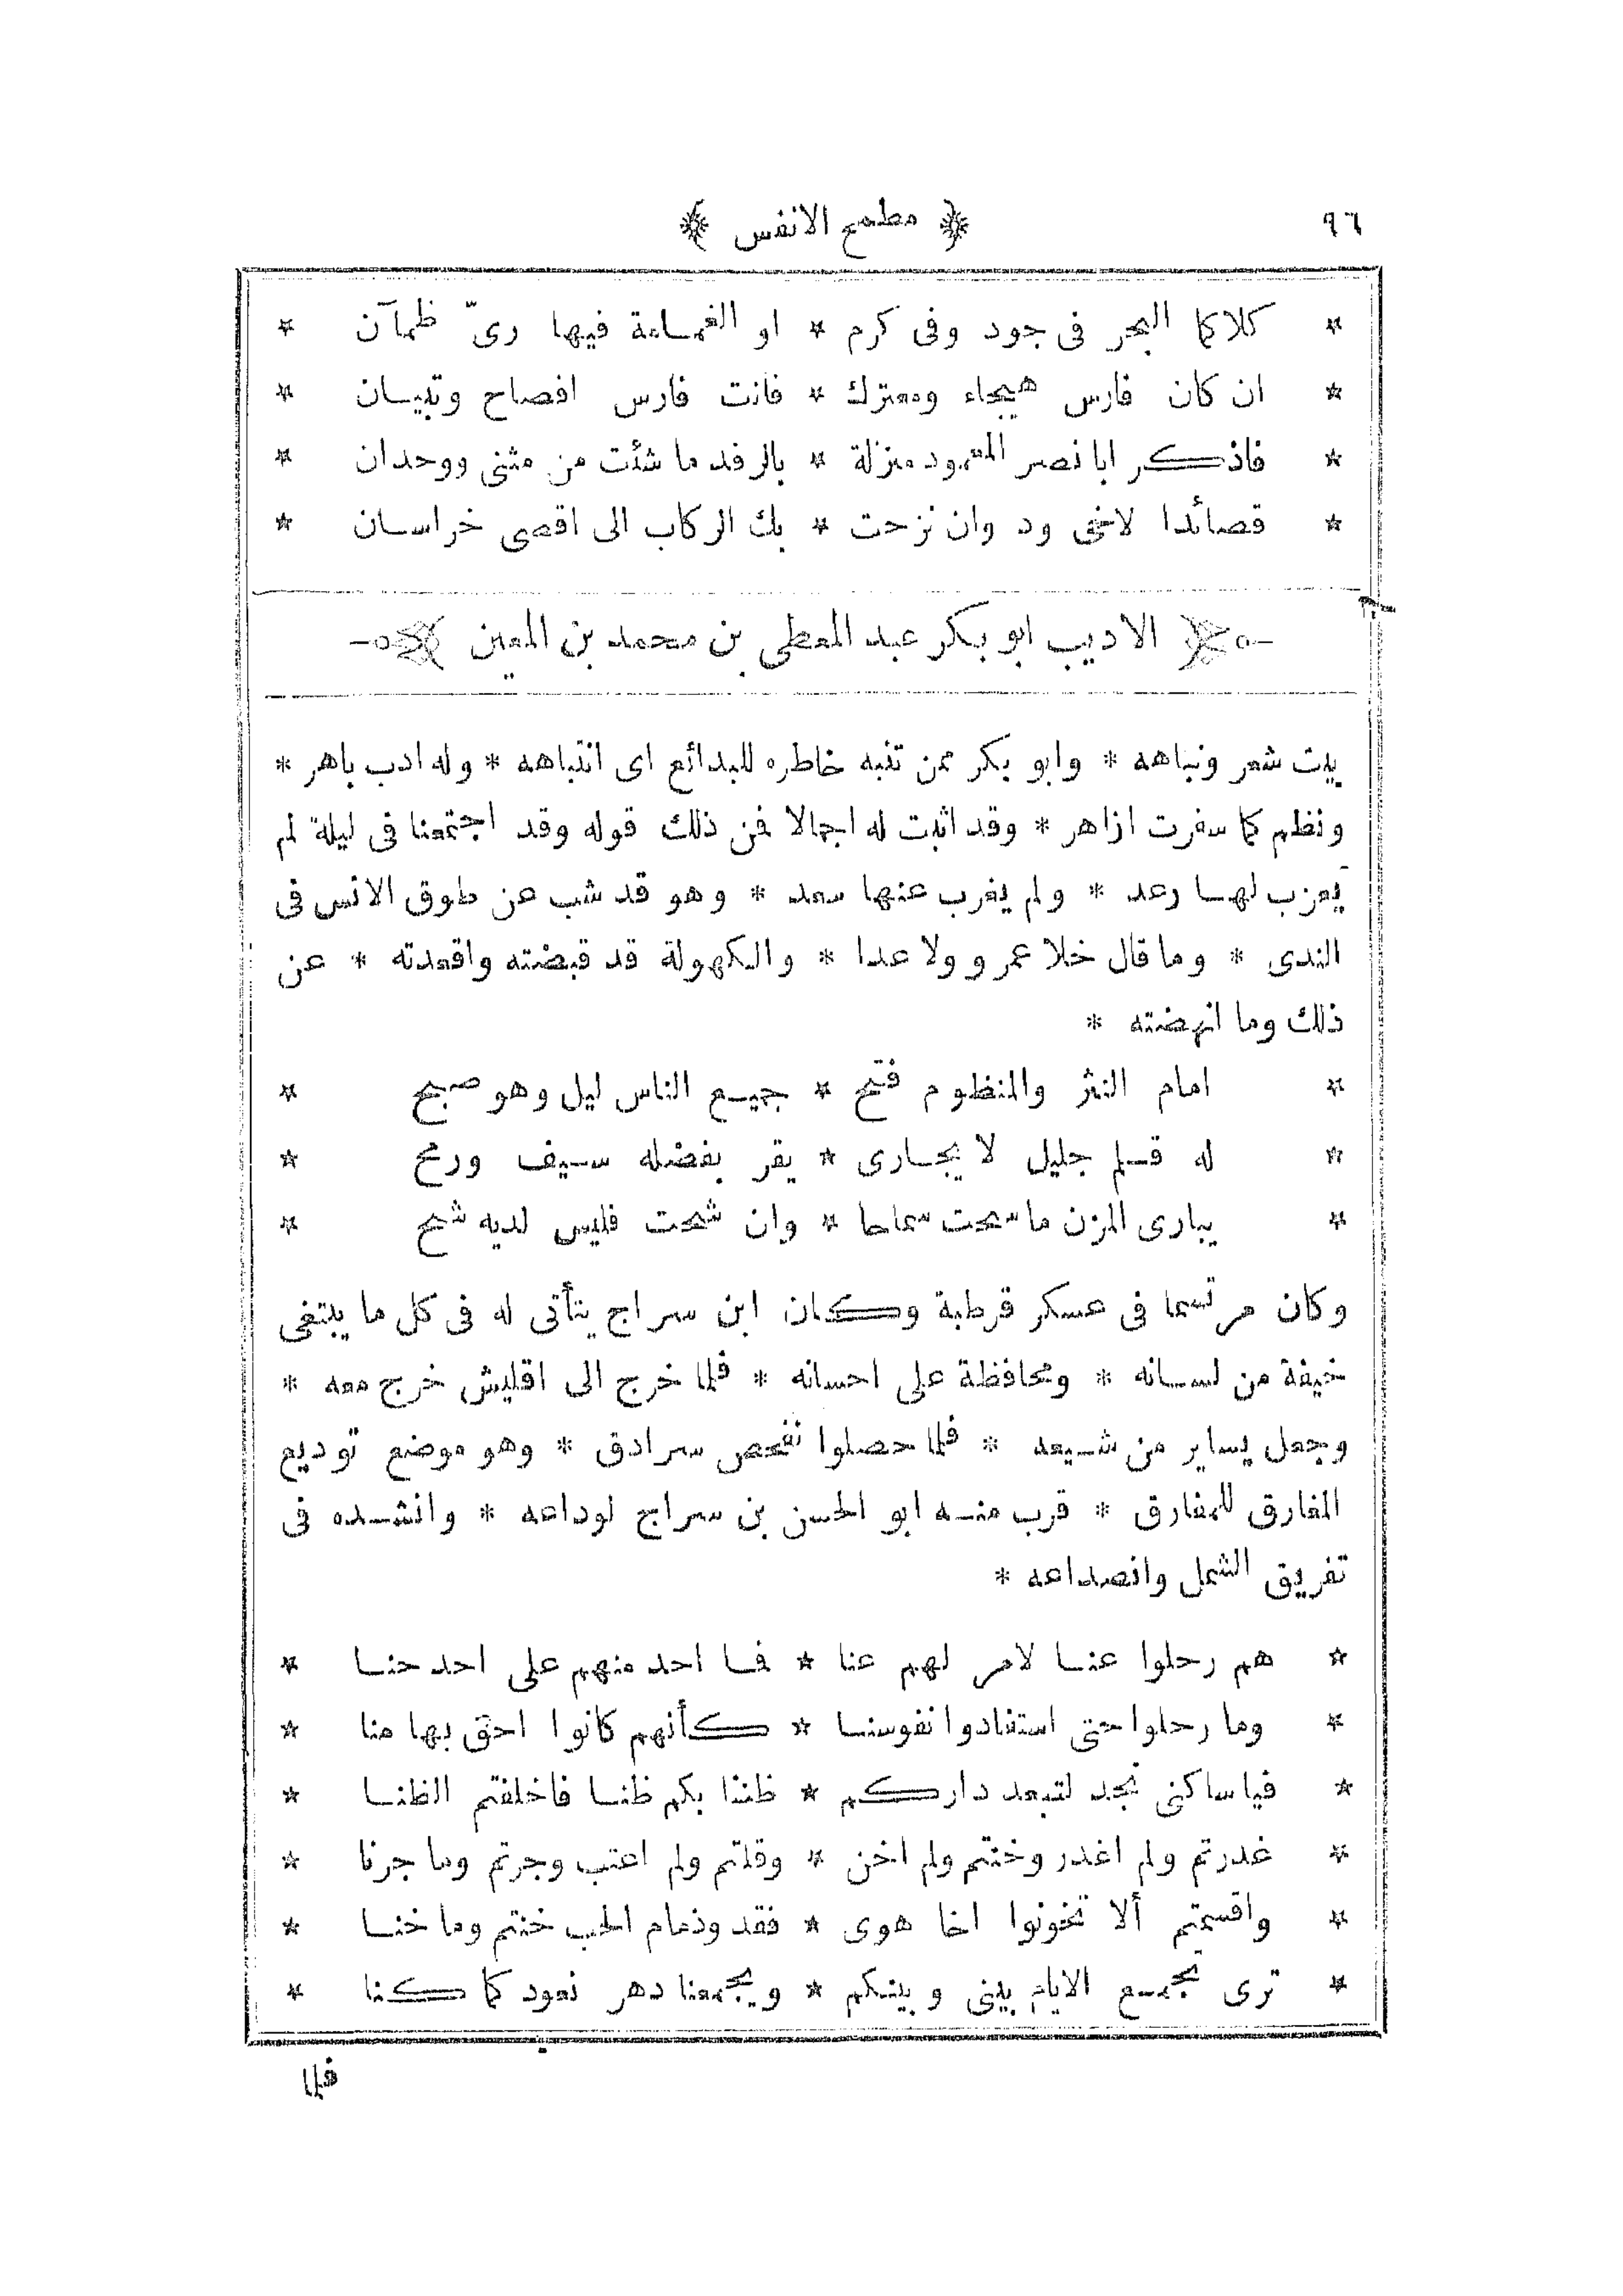 ٩٦ ﴿ مطمح الانفس ﴾
* كلاكما البحر فى جود وفى كرم * او الغمامة فيها رىّ ظمآن *
* ان كان فارس هيجاء ومعترك * فانت فارس افصاح وتبيان *
* فاذكر ابا نصر المعمود منزلة * بالرفد ما شئت من مثنى ووحدان *
* قصائدا لاخى ود وان نزحت * بك الركاب الى اقصى خراسان *
الاديب ابو بكر عبد المعطى بن محمد بن المعين
بيت شعر ونباهه * وابو بكر ممن تنبه خاطره للبدائع اى انتباهه * وله ادب باهر *
ونظم كما سفرت ازاهر * وقد اثبت له اجمالا فمن ذلك قوله وقد اجتمعنا فى ليلة لم
يعزب لها رعد * ولم يغرب عنها سعد * وهو قد شب عن طوق الانس فى
الندى * وما قال خلا عمرو ولا عدا * والكهولة قد قبضته واقعدته * عن
ذلك وما انهضته *
* امام النثر والمنظوم فتح * جميع الناس ليل وهو صبح *
* له قلم جليل لا يجارى * يقر بفضله سيف ورمح *
* يبارى المزن ما سمحت سماحا * وان شحت فليس لديه شح *
وكان مرتسما فى عسكر قرطبة وكان ابن سراج يتأتى له فى كل ما يبتغى
خيفة من لسانه * ومحافظة على احسانه * فلما خرج الى اقليش خرج معه *
وجعل يساير من شيعه * فلما حصلوا بفحص سرادق * وهو موضع توديع
المفارق للمفارق * قرب منه ابو الحسن بن سراج لوداعه * وانشده فى
تفريق الشمل وانصداعه *
* هم رحلوا عنا لامر لهم عنا * فما احد منهم على احد حنا *
* وما رحلوا حتى استفادوا نفوسنا * كأنهم كانوا احق بها منا *
* فيا ساكنى نجد لتبعد داركم * ظننا بكم ظنا فاخلفتم الظنا *
* غدرتم ولم اغدر وخنتم ولم اخن * وقلتم ولم اعتب وجرتم وما جرنا *
* واقسمتم ألا تخونوا اخا هوى * فقد وذمام الحب خنتم وما خنا *
* ترى تجمع الايام بينى وبينكم * ويجمعنا دهر نعود كما كنا *
فلما